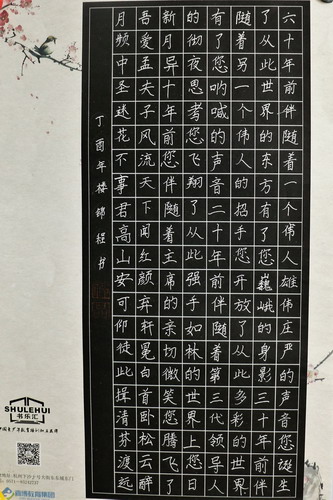 六十年前伴随着一个伟人雄伟庄严的声音您诞生
了从此世界的东方有了您巍峨的身影三十年前伴
随着另一个伟人的招手您开放了从此多彩的世界
有了您呐喊的声音二十年前伴随着第三代领导人
的彻夜思考您飞翔了从此强手如林的世界
新月异十年前伴随着主席的亲切微笑您腾飞了日
吾爱孟夫子风流天下闻红颜弃轩冕白首卧松云醉
月频中圣迷花不事君高山安可仰徒此揖清芬渡远
丁酉年楼锦程书
SHULEHUI
书乐汇